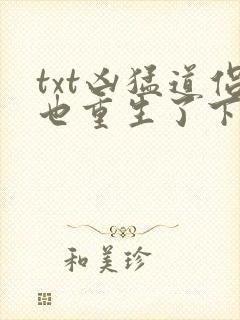 txt凶猛道侣
也重生了下
和美珍